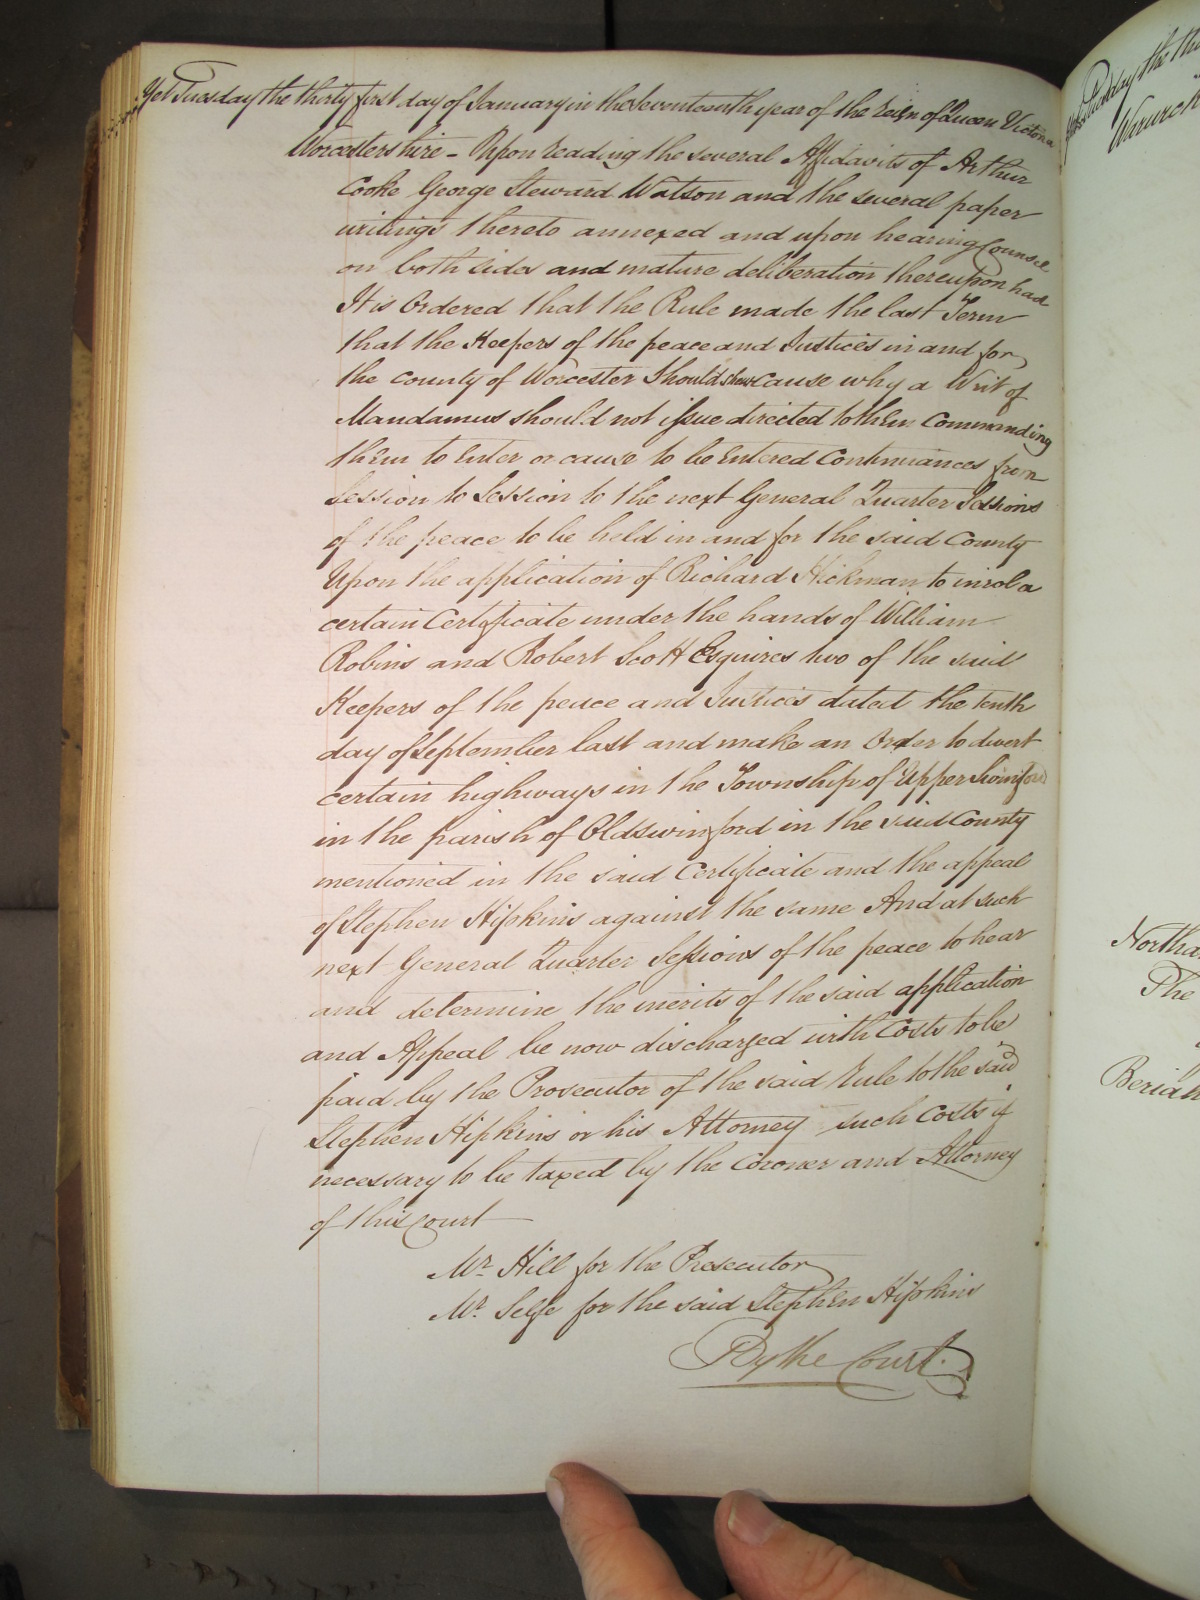 Yet Tuesday the thirty first day of January in the Seventeenth year of the Reign of Queen Victoria
Worcestershire - Upon reading the several Affidavits of Arthur
Cooke George Steward Watson and the several paper
writings thereto annexed and upon hearing Counsel
on both sides and mature deliberation thereupon had
It is Ordered that the Rule made the last Term
that the Keepers of the peace and Justices in and for
the county of Worcester Should shew cause why a Writ of
Mandamus should not issue directed to them Commanding
them to Enter or cause to be Entered Continuances from
Session to Session to the next General Quarter Sessions
of the peace to be held in and for the said County
Upon the application of Richard Hickman to inrol a
certain Certificate under the hands of William
Robins and Robert Scott Esquires two of the said
Keepers of the peace and Justices dated the tenth
day of September last and make an Order to divert
certain highways in the Township of Upper Swinford
in the parish of Oldswinford in the said County
mentioned in the said Certificate and the appeal
of Stephen Hipkins against the same And at such
next General Quarter Sessions of the peace to hear
and determine the merits of the said application
and Appeal be now discharged with Costs to be
paid by the Prosecutor of the said Rule to the said
Stephen Hipkins or his Attorney such Costs if
necessary to be taxed by the Coroner and Attorney
of this Court
Mr. Hill for the Prosecutor
Mr. Selfe for the said Stephen Hipkins
By the Court.
Tuesday the
The